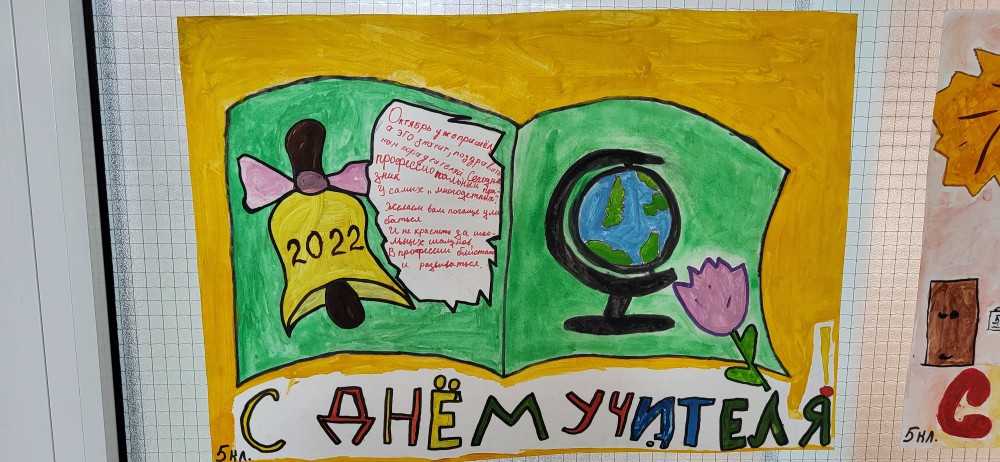 Октябрь уже пришёл,
а это значит, поздравить
нам пора учителей. Сегодня
профессиональный пра-
здник
У самых „многодетных"
Желаем вам почаще улы
баться
И не краснеть за шко-
льных шалунов,
В профессии блистать
и развиваться.
2022
С ДНЁМ УЧИТЕЛЯ!
5 кл.
5 кл.
С